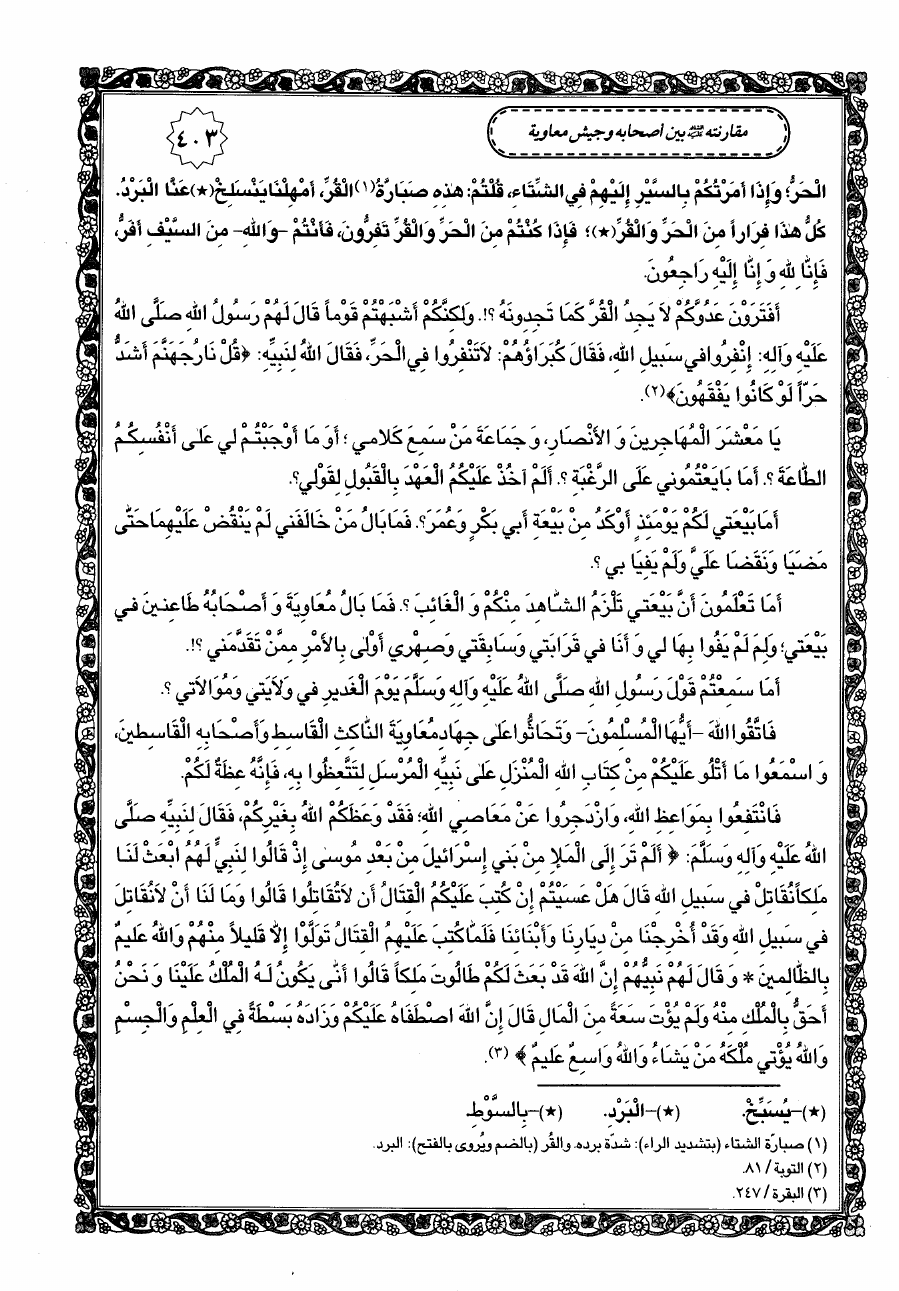 مقارنته عليه السلام بين أصحابه وجيش معاوية
٤٠٣
الْحَرُّ؛ وَإِذَا أَمَرْتُكُمْ بِالسَّيْرِ إِلَيْهِمْ فِي الشِّتَاءِ، قُلْتُمْ: هٰذِهِ صَبَارَّةُ(١) الْقُرِّ، أَمْهِلْنَا يَنْسَلِخْ(★) عَنَّا الْبَرْدُ.
كُلُّ هٰذَا فِرَاراً مِنَ الْحَرِّ وَالْقُرِّ(★)؛ فَإِذَا كُنْتُمْ مِنَ الْحَرِّ وَالْقُرِّ تَفِرُّونَ، فَأَنْتُمْ -وَاللهِ- مِنَ السَّيْفِ أَفَرُّ،
فَإِنَّا لِلهِ وَ إِنَّا إِلَيْهِ رَاجِعُونَ.
أَفَتَرَوْنَ عَدُوَّكُمْ لاَ يَجِدُ الْقُرَّ كَمَا تَجِدُونَهُ ؟!. وَلٰكِنَّكُمْ أَشْبَهْتُمْ قَوْماً قَالَ لَهُمْ رَسُولُ اللهِ صَلَّى اللهُ
عَلَيْهِ وَآلِهِ: إِنْفِرُوا فِي سَبِيلِ اللهِ، فَقَالَ كُبَرَاؤُهُمْ: لاَ تَنْفِرُوا فِي الْحَرِّ، فَقَالَ اللهُ لِنَبِيِّهِ: ﴿قُلْ نَارُ جَهَنَّمَ أَشَدُّ
حَرّاً لَوْ كَانُوا يَفْقَهُونَ﴾(٢).
يَا مَعْشَرَ الْمُهَاجِرِينَ وَ الأَنْصَارِ، وَ جَمَاعَةَ مَنْ سَمِعَ كَلاَمِي ؛ أَوَ مَا أَوْجَبْتُمْ لِي عَلىٰ أَنْفُسِكُمُ
الطَّاعَةَ ؟. أَمَا بَايَعْتُمُونِي عَلَى الرَّغْبَةِ ؟. أَلَمْ آخُذْ عَلَيْكُمُ الْعَهْدَ بِالْقَبُولِ لِقَوْلِي؟.
أَمَا بَيْعَتِي لَكُمْ يَوْمَئِذٍ أَوْكَدُ مِنْ بَيْعَةِ أَبِي بَكْرٍ وَعُمَرَ؟. فَمَا بَالُ مَنْ خَالَفَنِي لَمْ يَنْقُضْ عَلَيْهِمَا حَتّىٰ
مَضَيَا وَنَقَضَا عَلَيَّ وَلَمْ يَفِيَا بِي ؟.
أَمَا تَعْلَمُونَ أَنَّ بَيْعَتِي تَلْزَمُ الشَّاهِدَ مِنْكُمْ وَ الْغَائِبَ ؟. فَمَا بَالُ مُعَاوِيَةَ وَ أَصْحَابُهُ طَاعِنِينَ فِي
بَيْعَتِي؛ وَلِمَ لَمْ يَفُوا بِهَا لِي وَ أَنَا فِي قَرَابَتِي وَسَابِقَتِي وَصِهْرِي أَوْلىٰ بِالأَمْرِ مِمَّنْ تَقَدَّمَنِي ؟!.
أَمَا سَمِعْتُمْ قَوْلَ رَسُولِ اللهِ صَلَّى اللهُ عَلَيْهِ وَآلِهِ وَسَلَّمَ يَوْمَ الْغَدِيرِ فِي وَلاَيَتِي وَمُوَالاَتِي ؟.
فَاتَّقُوا اللهَ -أَيُّهَا الْمُسْلِمُونَ- وَتَحَاثُّوا عَلىٰ جِهَادِ مُعَاوِيَةَ النَّاكِثِ الْقَاسِطِ وَأَصْحَابِهِ الْقَاسِطِينَ،
وَ اسْمَعُوا مَا أَتْلُو عَلَيْكُمْ مِنْ كِتَابِ اللهِ الْمُنْزَلِ عَلىٰ نَبِيِّهِ الْمُرْسَلِ لِتَتَّعِظُوا بِهِ، فَإِنَّهُ عِظَةٌ لَكُمْ.
فَانْتَفِعُوا بِمَوَاعِظِ اللهِ، وَازْدَجِرُوا عَنْ مَعَاصِي اللهِ؛ فَقَدْ وَعَظَكُمُ اللهُ بِغَيْرِكُمْ، فَقَالَ لِنَبِيِّهِ صَلَّى
اللهُ عَلَيْهِ وَآلِهِ وَسَلَّمَ: ﴿ أَلَمْ تَرَ إِلَى الْمَلإِ مِنْ بَنِي إِسْرَائِيلَ مِنْ بَعْدِ مُوسىٰ إِذْ قَالُوا لِنَبِيٍّ لَهُمُ ابْعَثْ لَنَا
مَلِكاً نُقَاتِلْ فِي سَبِيلِ اللهِ قَالَ هَلْ عَسَيْتُمْ إِنْ كُتِبَ عَلَيْكُمُ الْقِتَالُ أَن لاَ تُقَاتِلُوا قَالُوا وَمَا لَنَا أَنْ لاَ نُقَاتِلَ
فِي سَبِيلِ اللهِ وَقَدْ أُخْرِجْنَا مِنْ دِيَارِنَا وَأَبْنَائِنَا فَلَمَّا كُتِبَ عَلَيْهِمُ الْقِتَالُ تَوَلَّوْا إِلاَّ قَلِيلاً مِنْهُمْ وَاللهُ عَلِيمٌ
بِالظَّالِمِينَ * وَ قَالَ لَهُمْ نَبِيُّهُمْ إِنَّ اللهَ قَدْ بَعَثَ لَكُمْ طَالُوتَ مَلِكاً قَالُوا أَنّىٰ يَكُونُ لَهُ الْمُلْكُ عَلَيْنَا وَ نَحْنُ
أَحَقُّ بِالْمُلْكِ مِنْهُ وَلَمْ يُؤْتَ سَعَةً مِنَ الْمَالِ قَالَ إِنَّ اللهَ اصْطَفَاهُ عَلَيْكُمْ وَزَادَهُ بَسْطَةً فِي الْعِلْمِ وَالْجِسْمِ
وَاللهُ يُؤْتِي مُلْكَهُ مَنْ يَشَاءُ وَاللهُ وَاسِعٌ عَلِيمٌ ﴾ (٣).
(★)-يُسَبِّخْ. (★)-الْبَرْدِ. (★)-بِالسَّوْطِ
(١) صبارّة الشتاء (بتشديد الراء): شدّة برده. والقُر (بالضم ويُروى بالفتح): البرد.
(٢) التوبة / ٨١.
(٣) البقرة / ٢٤٧.